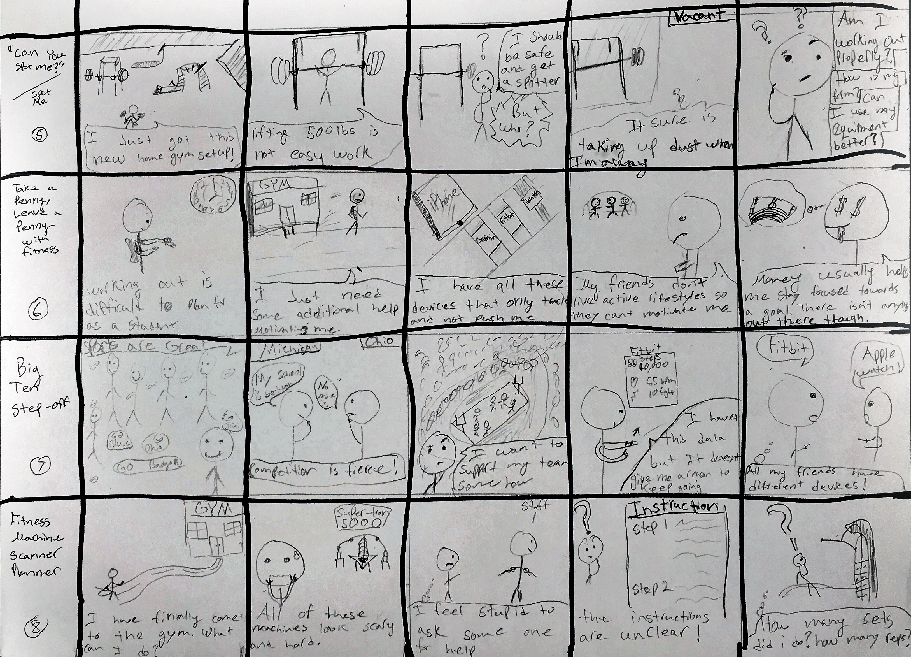 "Can You
Spot me?"
Spot Me
5
I Just got this
new home gym setup!
lifting 500lbs is
not easy work
?
I should
be safe
and get
a spotter
But
who?
Vacant
It sure is
taking up dust when
I'm away
? ??
Am I
working out
properly?
How is my
form? Can
I use my
equitment
better?
Take a
Penny,
Leave a
Penny
with
fitness
6
working out is
difficult to plan for
as a student
GYM
I Just need
some additional help
motivating me.
iPhone
Fitbit
I have all these
devices that only track
and not push me
My friends don't
live active lifestyles so
they cant motivate me
or
$ $
Money usually helps
me stay focused towards
a goal there isn't any
out there though.
Big
Ten
Step-off
7
are Great
Go
Blue
Go
Ohio
Go Badgers
Michigan
Ohio
My school
is better
No
mine
Competition is fierce!
I want to
support my team
some how
Fitbit
Steps
10,000
55 bpm
I have
this data
but it doesnt
give me a reason to
keep going
Fitbit
Apple
(watch)
All my friends have
different devices!
Fitness
Machine
Scanner
Planner
8
GYM
I have finally come
to the gym. What
can I do?
Super-tron
5000
All of these
machines look scary
and hard.
Staff
I feel stupid to
ask some one
for help
?
Instruction
Step 1
Step 2
the instructions
are unclear!
?
How many sets
did i do? how many reps?